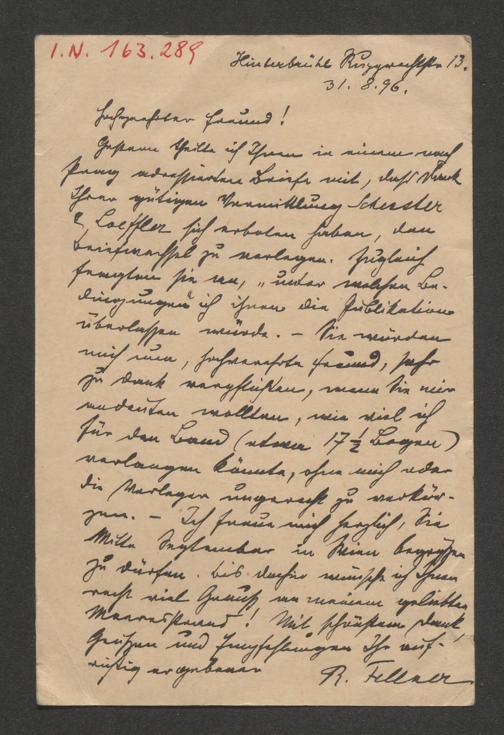 I.N. 163.289
Hinterbrühl Ruzgrechtstr 13.
31. 8. 96.
Hochgeehrter Freund!
Gestern theilte ich Ihnen in einem nach
Prag adressierten Briefe mit, daß Dank
Ihrer gütigen Vermittlung Schuster
& Loeffler sich erboten haben, den
Briefwechsel zu verlegen. Zugleich
fragten sie an, „unter welchen Be-
dingungen" ich ihnen die Publikation
überlassen würde. – Sie würden
mich nun, hochgeehrter Freund, sehr
zu Dank verpflichten, wenn Sie mir
andeuten wollten, wie viel ich
für den Band (etwa 17 ½ Bogen)
verlangen könnte, ohne mich oder
die Verleger ungerecht zu verkür-
zen. – Ich freue mich herzlich, Sie
Mitte September in Wien begrüßen
zu dürfen. Bis dahin wünsche ich Ihnen
recht viel Genuß an meinem geliebten
Meeresstrand! Mit schönstem Dank
Grüßen und Empfehlungen Ihr auf-
richtig ergebener
R. Fellner